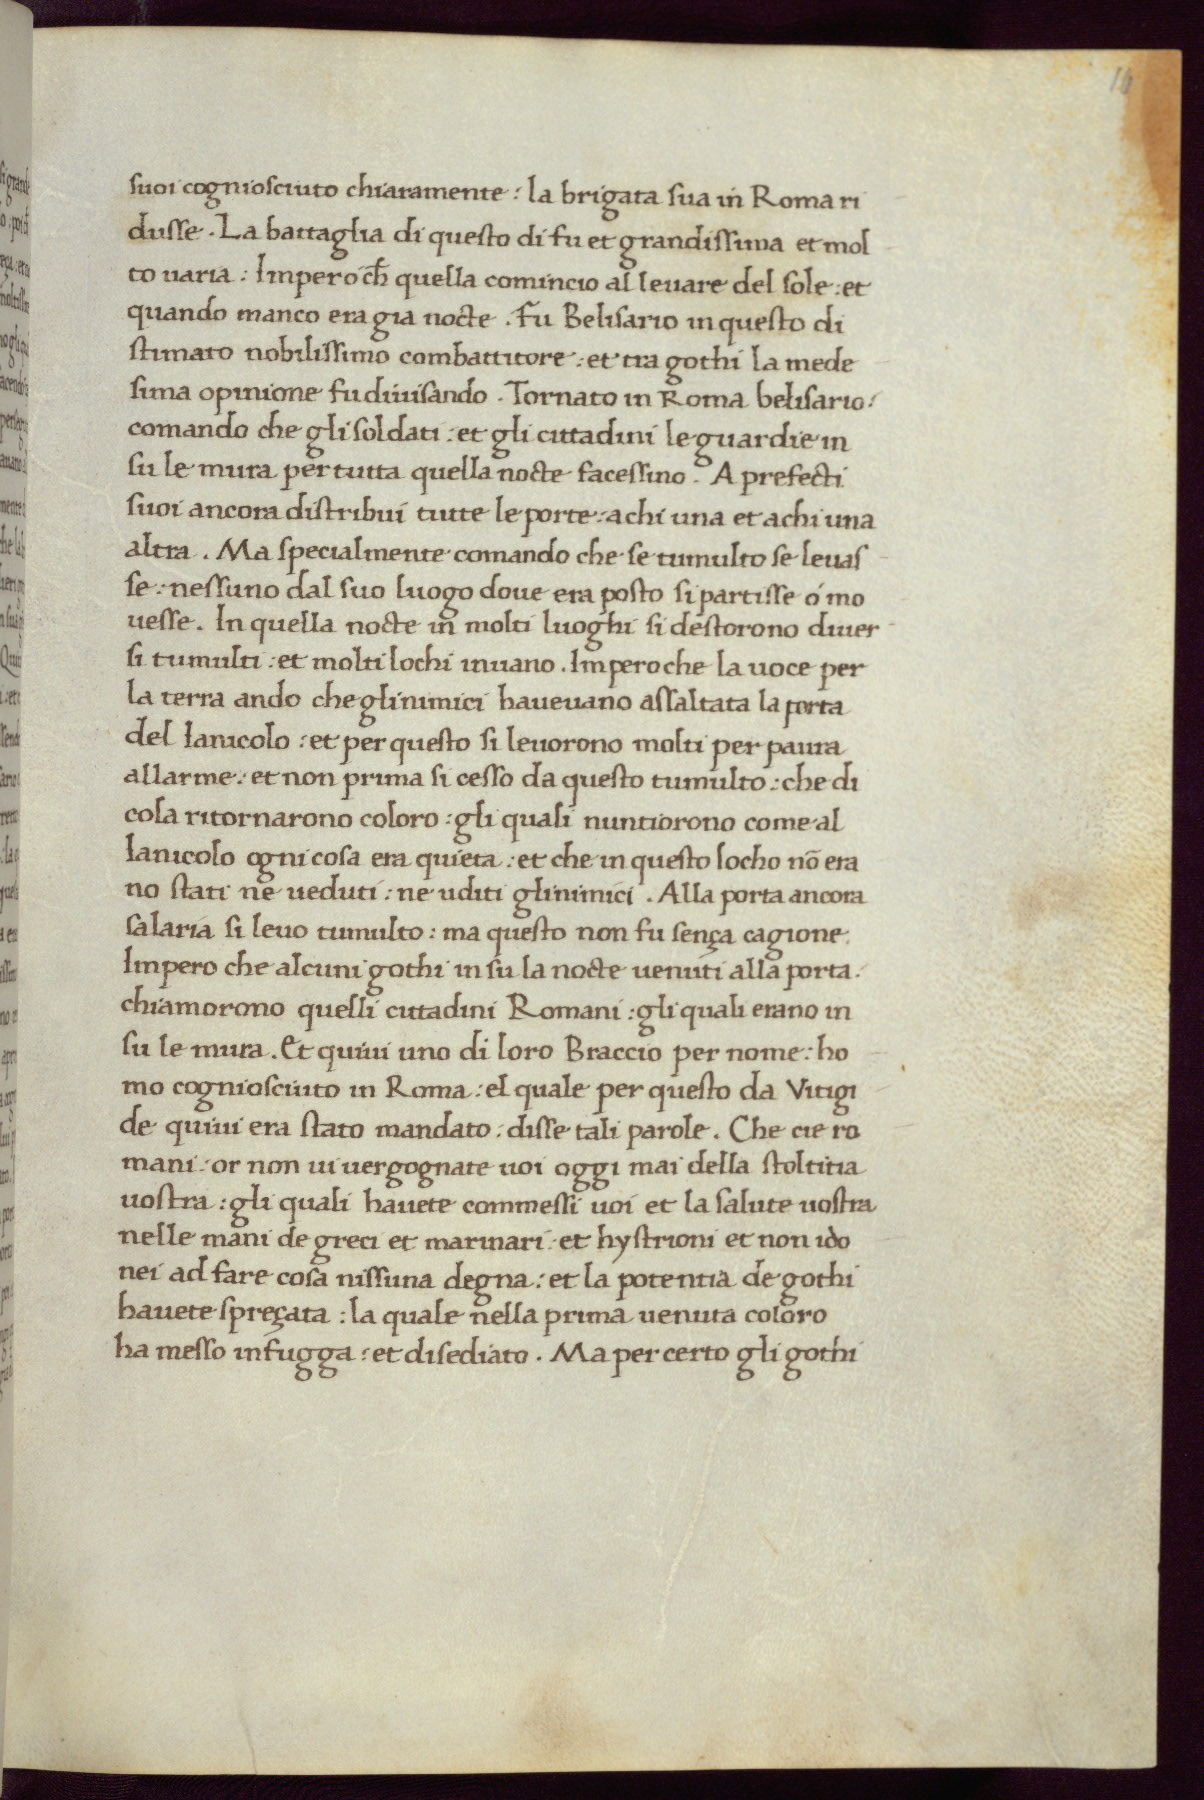 16
suoi cogniosciuto chiaramente : la brigata sua in Roma ri
dusse . La battaglia di questo di fu et grandissima et mol
to uaria : Imperoch̄ quella comincio al leuare del sole : et
quando manco era gia nocte . fu Belisario in questo di
stimato nobilissimo combattitore : et tra gothi la mede
sima opinione fu diuisando . Tornato in Roma belisario :
comando che gli soldati : et gli cittadini le guardie in
su le mura per tutta quella nocte facessino . A prefecti
suoi ancora distribui tutte le porte : a chi una et a chi una
altra . Ma specialmente comando che se tumulto se leuas
se : nessuno dal suo luogo doue era posto si partisse ó mo
uesse . In quella nocte in molti luoghi si destorono diuer
si tumulti : et molti lochi inuano . Impero che la uoce per
la terra ando che gli nimici haueuano assaltata la porta
del Ianicolo : et per questo si leuorono molti per paura
allarme : et non prima si cesso da questo tumulto : che di
cola ritornarono coloro : gli quali nuntiorono come al
Ianicolo ogni cosa era quieta : et che in questo locho nō era
no stati ne ueduti : ne uditi gli nimici . Alla porta ancora
salaria si leuo tumulto : ma questo non fu sença cagione .
Impero che alcuni gothi in su la nocte uenuti alla porta .
chiamorono quelli cittadini Romani : gli quali erano in
su le mura . Et quiui uno di loro Braccio per nome : ho
mo cogniosciuto in Roma : el quale per questo da Vitigi
de quiui era stato mandato : disse tali parole . Che cie ro
mani : or non ui uergognate uoi oggi mai della stoltitia
uostra : gli quali hauete commessi uoi et la salute uostra
nelle mani de greci et marinari : et hystrioni et non ido
nei ad fare cosa nissuna degna : et la potentia de gothi
hauete spreçata : la quale nella prima uenuta coloro
ha messo in fugga : et disediato . Ma per certo gli gothi